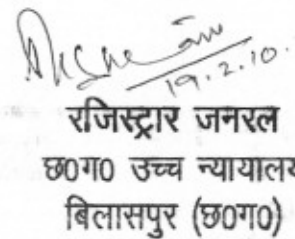 19.2.10.
रजिस्ट्रार जनरल
छ0ग0 उच्च न्यायालय
बिलासपुर (छ0ग0)